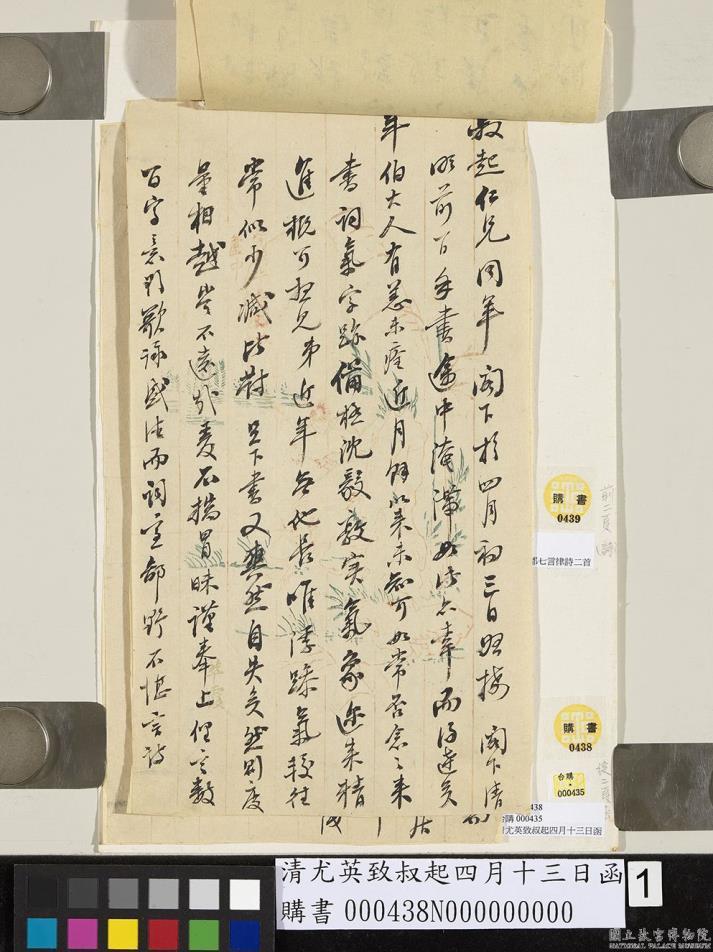 叔起仁兄同年 閣下於四月初三日照接 閣下清
明前百手書途中淹滯如此亦幸而得達矣
年伯大人有恙未痊近月餘以來未知可如常否念念來
書詞氣字跡備極沈毅敦实氣象迩来精
進概可想見弟近年無他長唯浮躁氣較往
常似少減比對 足下書又爽然自失矣然則度
量相越豈不遠哉爰不揣冒昧謹奉上俚言数
百字意則歌詠盛法而詞則鄙野不堪言詩
購書
0439
前二頁
七言律詩二首
購書
0438
台購
000435
438
台購 000435
尤英致叔起四月十三日函
清尤英致叔起四月十三日函
1
購書 000438N000000000
國立故宮博物院
NATIONAL PALACE MUSEUM